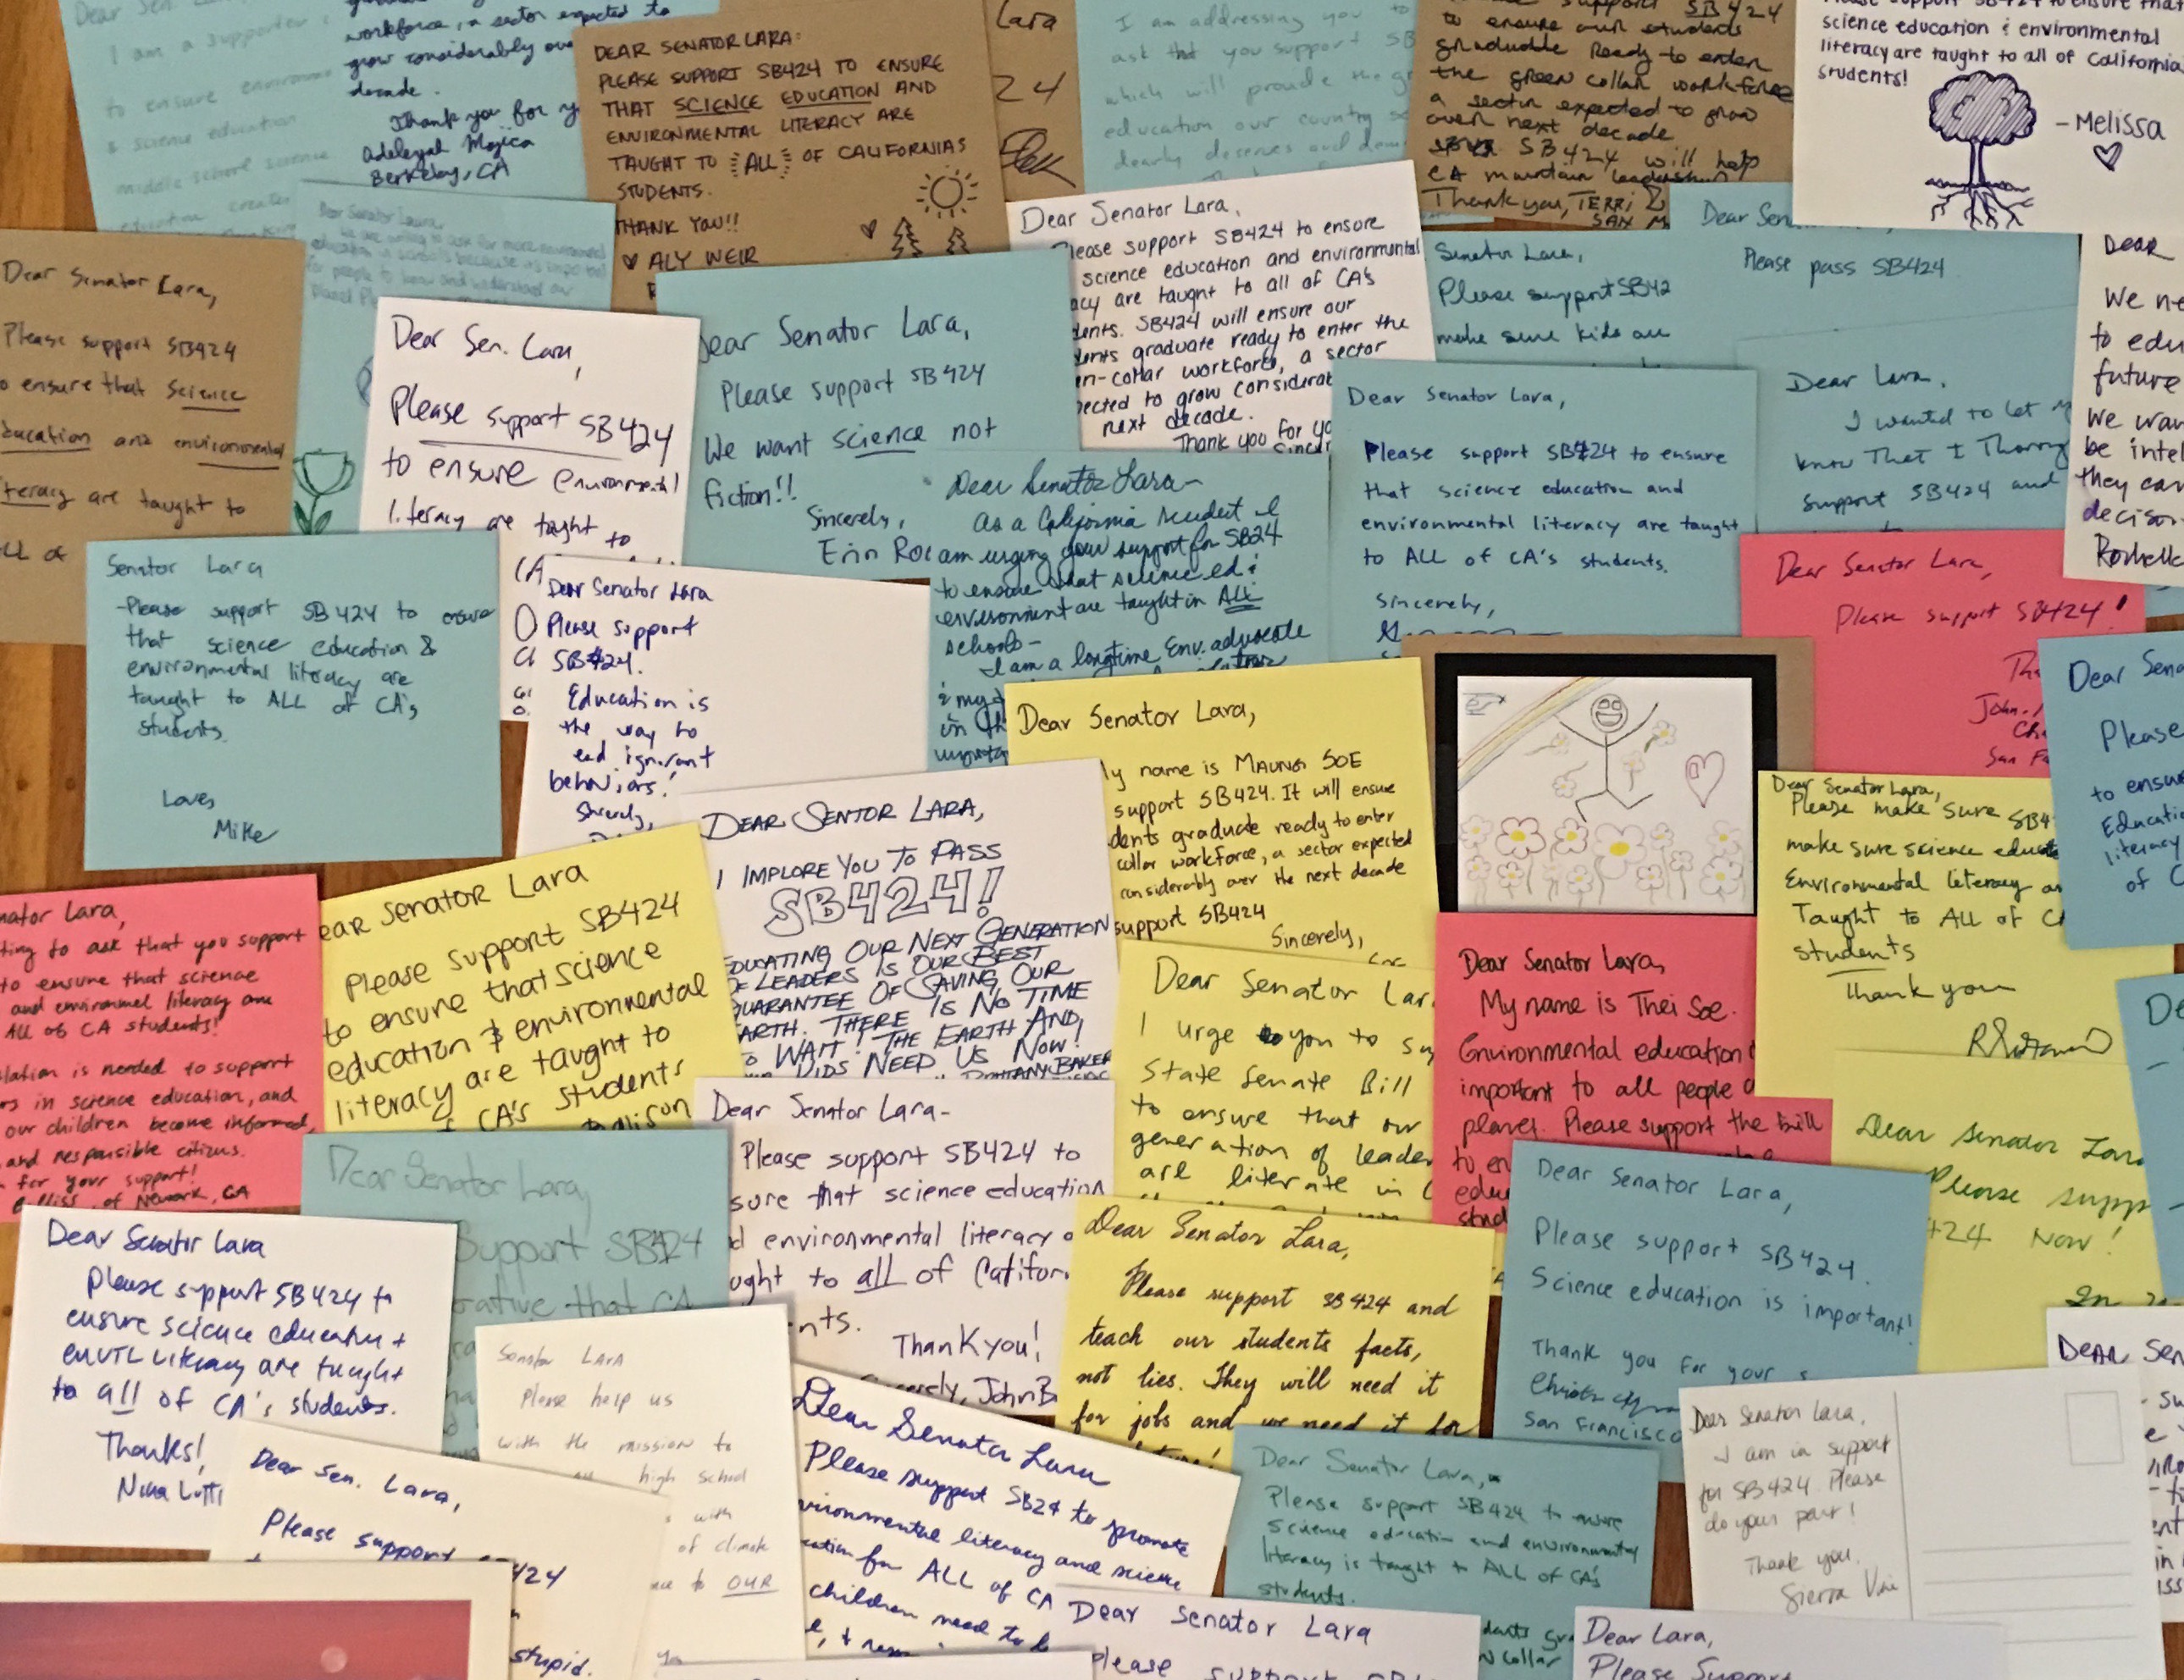 Dear Sen.
I am a supporter
to ensure environm
& science education
middle school science
workforce, a sector expected to
grow considerably ove
decade.
Thank you for y
Adeleyal Mojica
Berkeley, CA
DEAR SENATOR LARA:
PLEASE SUPPORT SB424 TO ENSURE
THAT SCIENCE EDUCATION AND
ENVIRONMENTAL LITERACY ARE
TAUGHT TO ALL OF CALIFORNIAS
STUDENTS.
THANK YOU!!
♥ ALY WEIR
Lara
24
I am addressing you to
ask that you support SB
which will provide the g
education our country s
dearly deserves and dem
support SB424
to ensure our students
graduate ready to enter
the green collar workforce
a sector expected to grow
over next decade
SB424 will help
CA maintain leadership
Thank you, TERRI
SAN M
Please support SB424 to ensure that
science education & environmental
literacy are taught to all of California
students!
- Melissa
♡
Dear Senator Laura,
Dear Senator Lara,
Please support SB424
o ensure that Science
ducation and environmental
iteracy are taught to
LL of
Dear Sen. Lara,
Please support SB424
to ensure environmental
literacy are taught to
Dear Senator Lara,
Please support SB424
We want science not
fiction!!
Sincerely,
Erin Ro
Dear Senator Lara,
Please support SB424 to ensure
science education and environmental
acy are taught to all of CA's
dents. SB424 will ensure our
dents graduate ready to enter the
en-collar workforce, a sector
pected to grow considerab
next decade.
Thank you for yo
Sincer
Senator Lara,
Please support SB42
make sure kids are
Dear Sen
Please pass SB424
Dear Lara,
I wanted to let
know That I Thorou
support SB424 and
Dear
We ne
to edu
future
We wan
be intel
they can
decision
Rochelle
Dear Senator Lara,
Please support SB424 to ensure
that science education and
environmental literacy are taught
to ALL of CA's students.
Sincerely,
Dear Senator Lara-
As a California resident I
am urging your support for SB24
to ensure that science ed &
environment are taught in ALL
schools-
I am a longtime Env. advocate
& my
in th
Senator Lara
-Please support SB424 to ensure
that science education &
environmental literacy are
taught to ALL of CA's
students.
Love,
Mike
Dear Senator Lara
Please support
SB424.
Education is
the way to
end ignorant
behaviors!
Sincerely,
Dear Senator Lara,
Please support SB424!
Tha
John
Ch
San Fr
Dear Sena
Please
to ensu
Educati
literacy
of C
Dear Senator Lara,
y name is MAUNG SOE
support SB424. It will ensure
dents graduate ready to enter
collar workforce, a sector expected
considerably over the next decade
support SB424
Sincerely,
Dear Senator Lara,
Please make sure SB4
make sure science educat
Environmental literacy a
Taught to ALL of CA
students
Thank you
DEAR SENTOR LARA,
I IMPLORE YOU TO PASS
SB424!
EDUCATING OUR NEXT GENERATION
OF LEADERS IS OUR BEST
GUARANTEE OF SAVING OUR
EARTH. THERE IS NO TIME
TO WAIT! THE EARTH AND
KIDS NEED US NOW!
BRITTANY BAKER
nator Lara,
ting to ask that you support
to ensure that science
and environmel literacy are
ALL of CA students!
slation is needed to support
rs in science education, and
our children become informed,
and responsible citizens.
for your support!
Elliss, of Newark, CA
ear Senator Lara
Please support SB424
to ensure that science
education & environmental
literacy are taught to
CA's students
Dear Senator Lar
I urge to you to su
State Senate Bill
to ensure that our
generation of leader
are literate in
Dear Senator Lara,
My name is Thei Soe.
Environmental education
important to all people
planet. Please support the bill
to en
edu
stud
Dear Senator Lara
Please supp
424 NOW!
De
Dear Senator Lara-
Please support SB424 to
sure that science education
d environmental literacy
ught to all of Califor
nts.
Thank you!
John B
Dear Senator Lara,
Support SB424
rative that CA
Dear Senator Lara,
Please support SB424.
Science education is important!
Thank you for your s
San Francisco
Dear Senator Lara
Please support SB424 to
ensure science education +
envtl literacy are taught
to all of CA's students.
Thanks!
Nina Lutti
Dear Senator Lara,
Please support SB424 and
teach our students facts,
not lies. They will need it
for jobs and we need it for
Senator Lara
Please help us
with the mission to
high school
with
of climate
to OUR
Dear Sen. Lara,
Please support
424
stupid.
Dear Senator Lara
Please support SB24 to promote
vironmental literacy and science
cation for ALL of CA
children need to b
Dear Senator Lara,
Please support SB424 to ensure
science education and environmental
literacy is taught to ALL of CA's
students.
Dear Senator Lara,
I am in support
for SB424. Please
do your part!
Thank you.
Sierra
DEAR SEN
Dear Senator Lara
Please support
dents gra
collar
Dear Lara,
Please Support